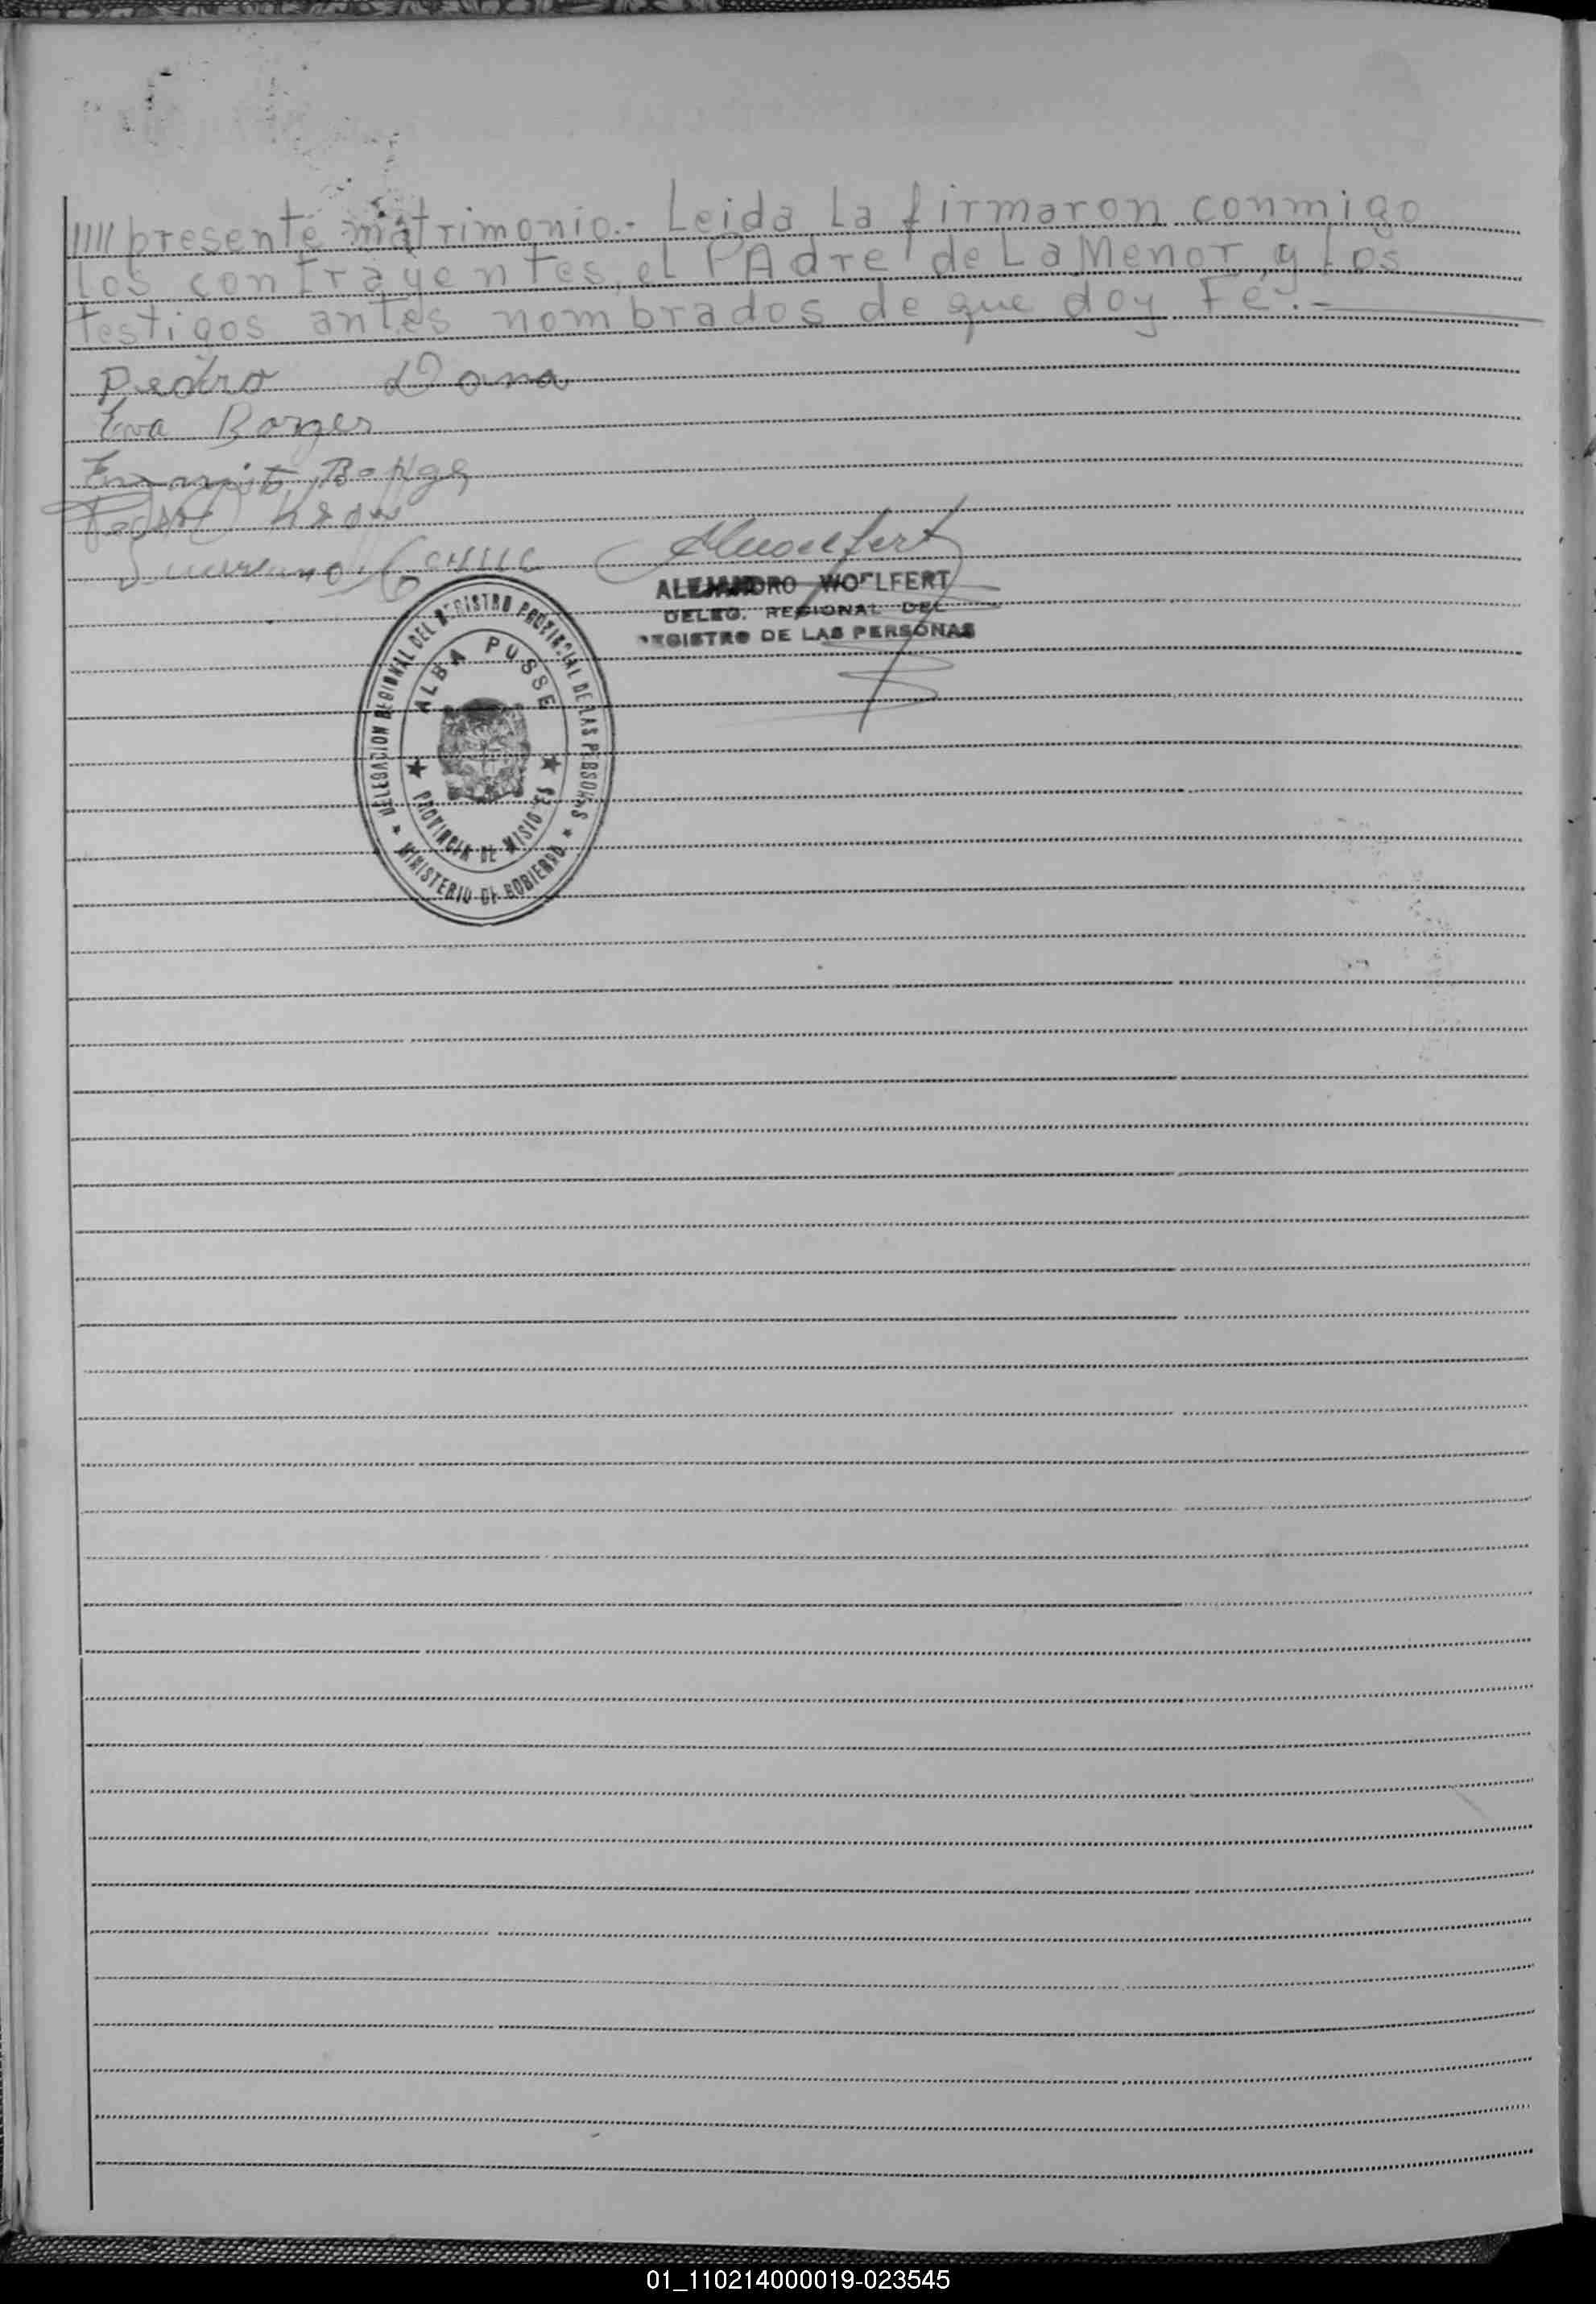 ///// presente matrimonio.- Leida La firmaron conmigo
los contrayentes, el PAdre de La Menor, y Los
testigos antes nombrados de que doy Fé.-
Pedro
Eva Borges
ALEJANDRO WOELFERT
DELEG. REGIONAL DEL
REGISTRO DE LAS PERSONAS
DELEGACION REGIONAL DEL REGISTRO PROVINCIAL DE LAS PERSONAS
ALBA POSSE
PROVINCIA DE MISIONES
MINISTERIO DE GOBIERNO
01_110214000019-023545